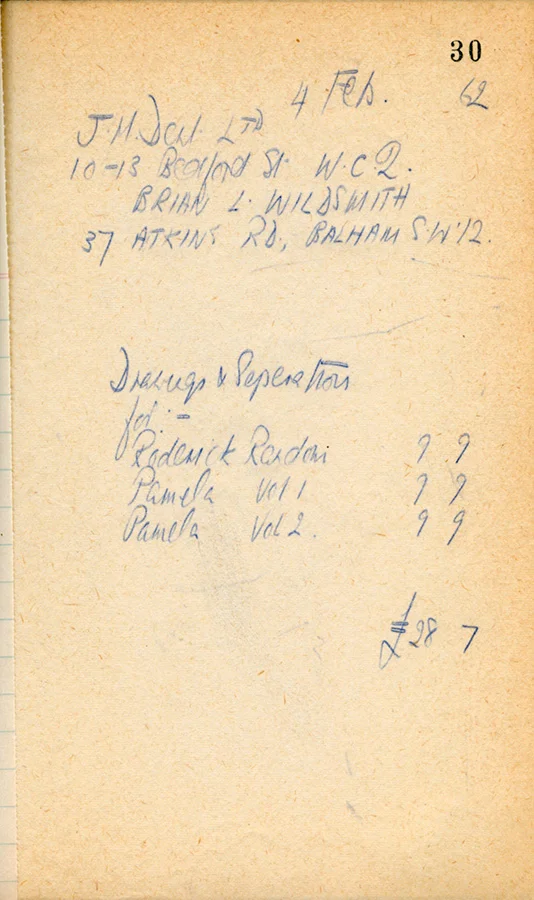 30
4 Feb. 62
J. M. Dent LTD
10-13 Bedford St. W.C.2.
BRIAN L. WILDSMITH
37 ATKINS RD, BALHAM S.W.12.
Drawings & Seperations
for :-
Roderick Random 9 9
Pamela Vol 1 9 9
Pamela Vol 2. 9 9
£28 7